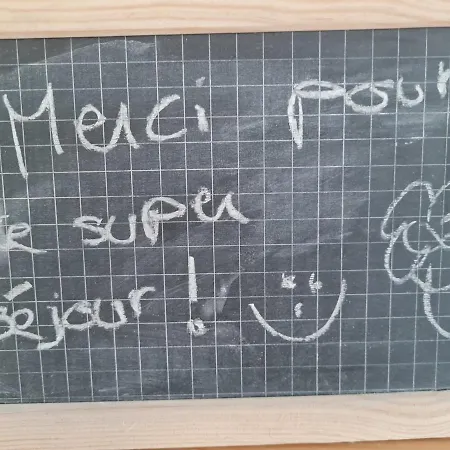 Merci pour
le super
séjour !